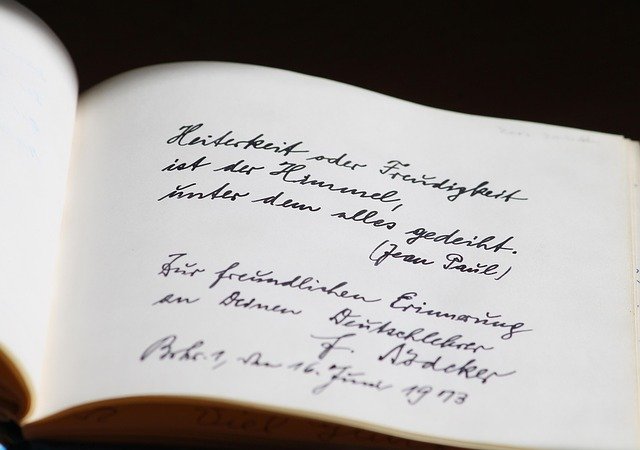 Heiterkeit oder Freudigkeit
ist der Himmel,
unter dem alles gedeiht.
(Jean Paul)
Zur freundlichen Erinnerung
an Deinen Deutschlehrer
F. Bädeker
den 16. Juni 1973